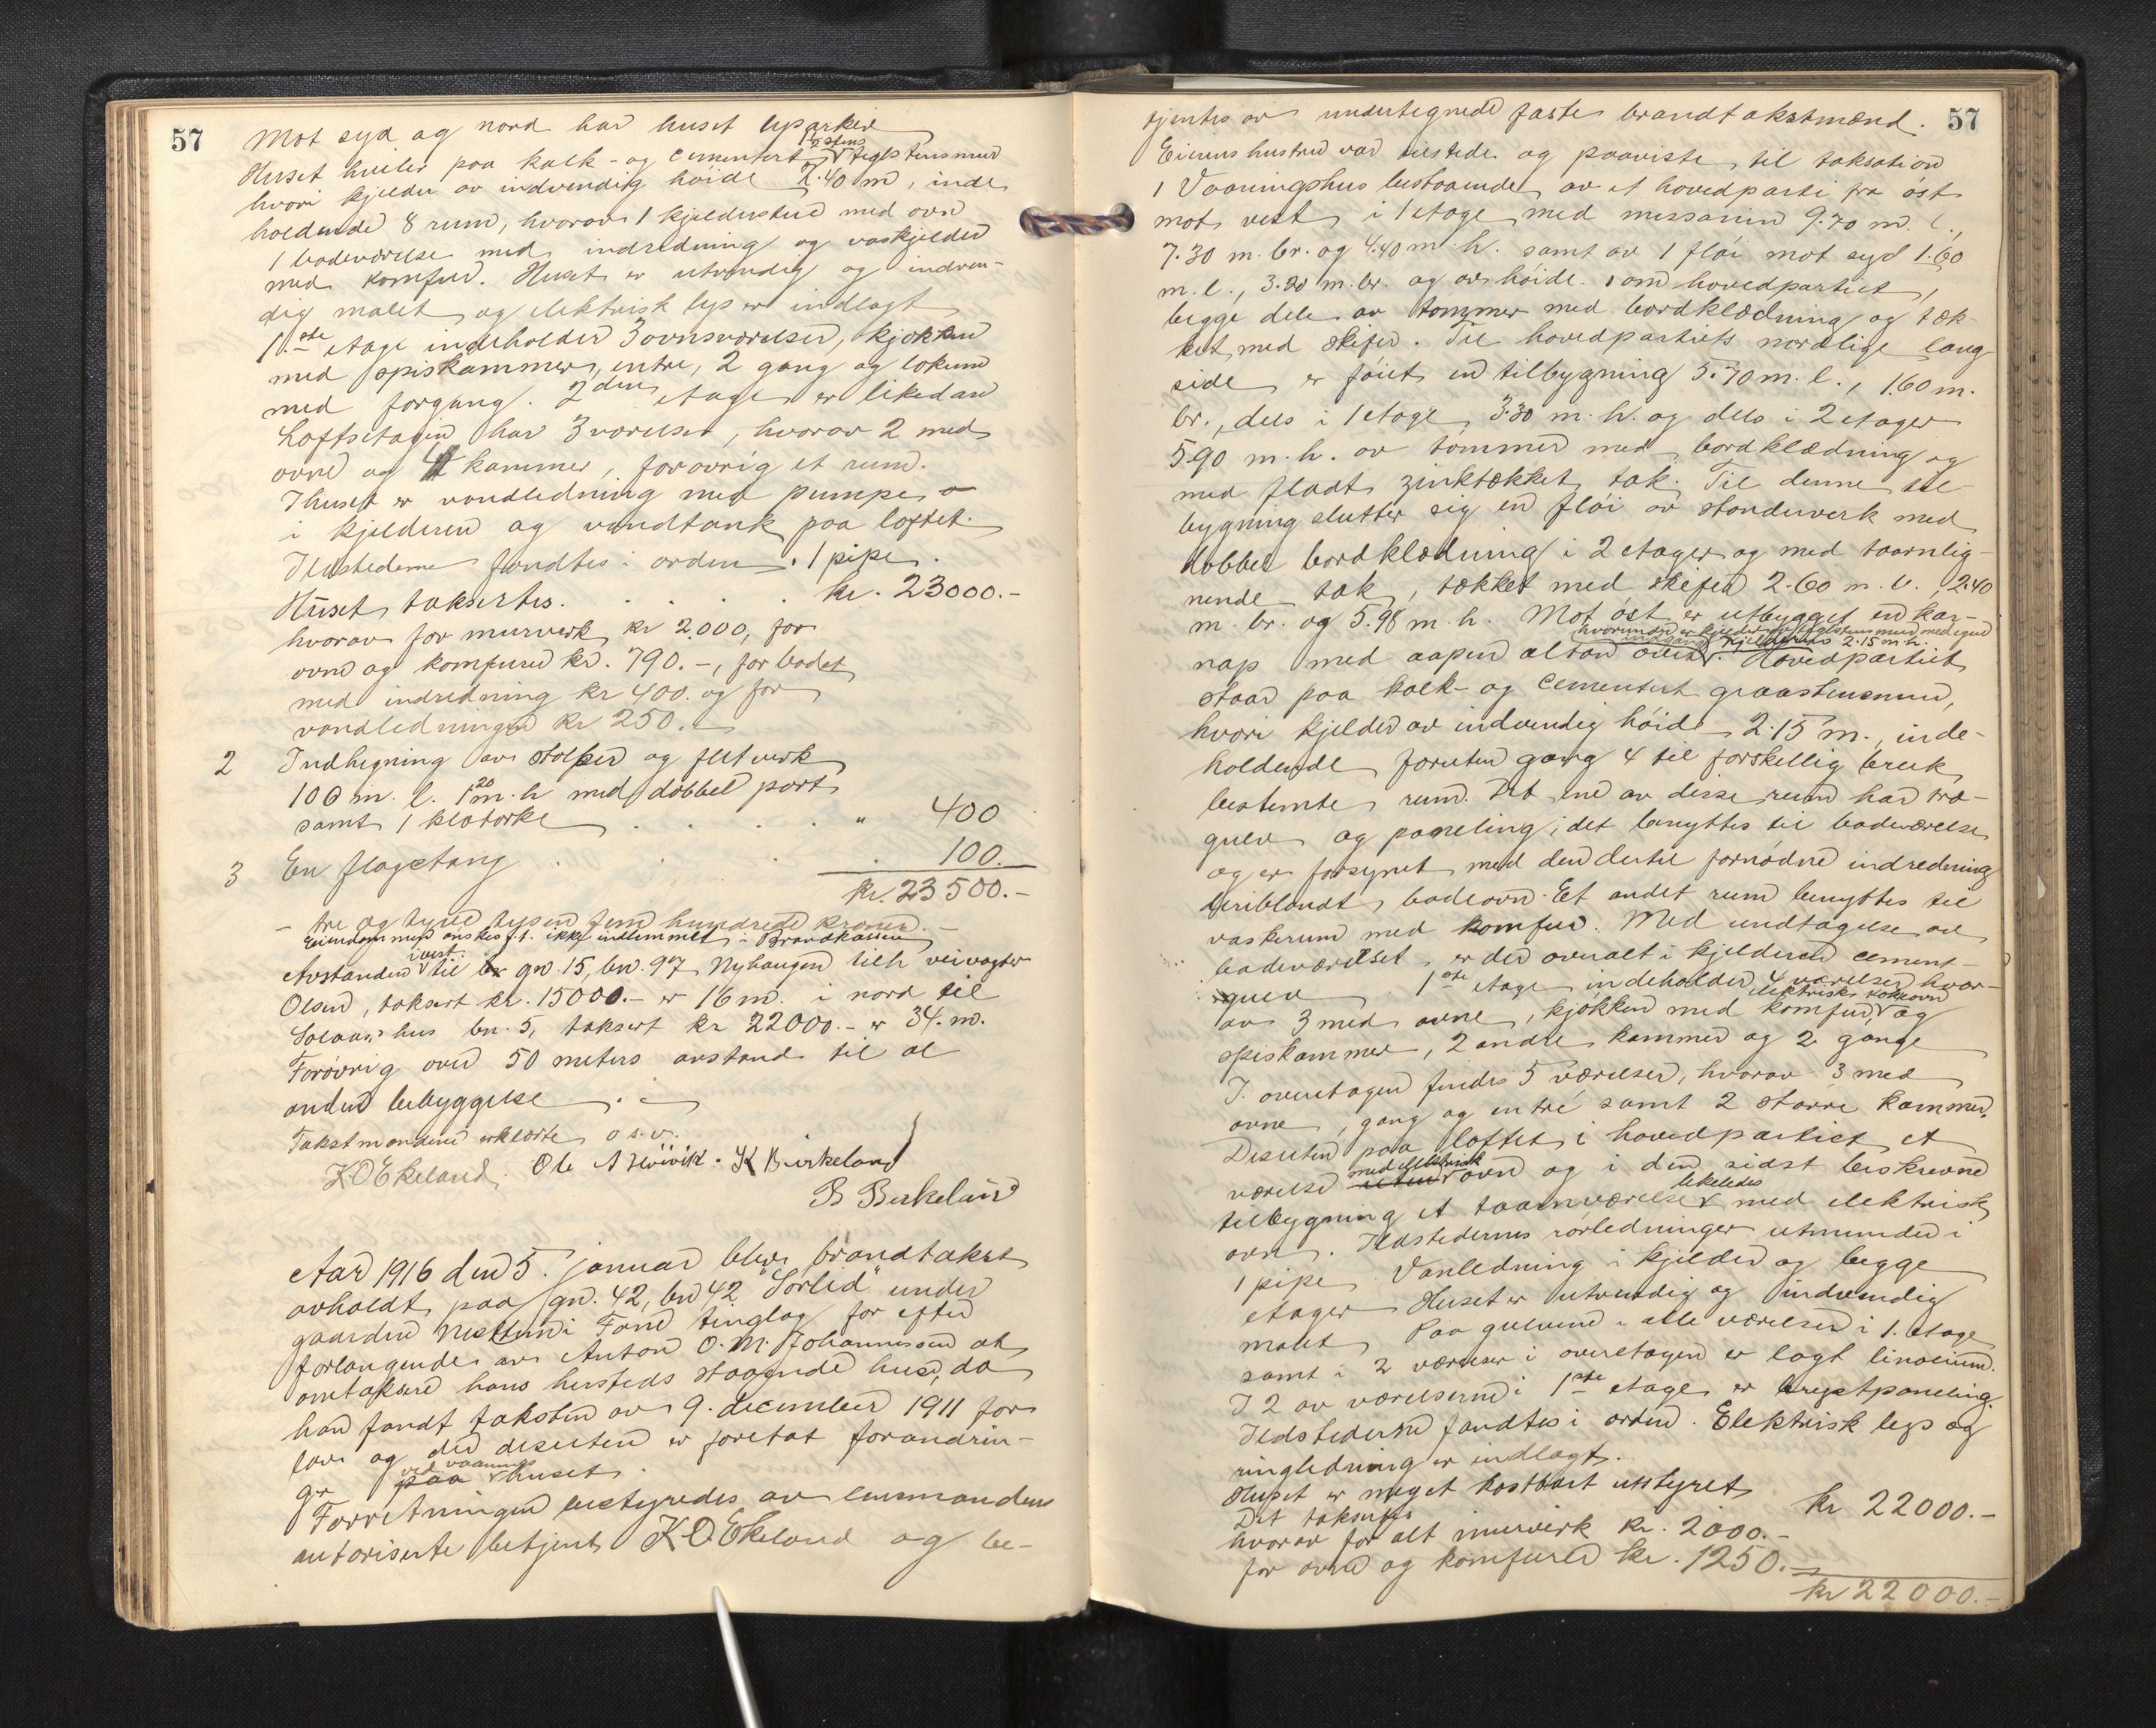 57
Mot syd og nord har huset op arker
Huset hviler paa kalk- og cementert 1 1/2 stens teglstensmur
hvori kjelder av indvendig høide 2.40 m, inde
holdende 8 rum, hvorav 1 kjelderstue med ovn
1 badeværelse med indredning og vaskjelder
med komfur. Huset er utvendig og indven-
dig malet og elektrisk lys er indlagt
1.ste etage indeholder 3 ovnsværelser, kjøkken
med spiskammer, entre, 2 gang og lokum
med forgang. 2den etage er likedan
Loftsetagen har 3 værelser, hvorav 2 med
ovne og 4 kammer, forøvrig et rum.
I huset er vandledning med pumpe
i kjelderen og vandtank paa loftet.
Ildstederne fandtes i orden. 1 pipe.
Huset taksertes . . . . kr. 23000.-
hvorav for murverk kr 2.000, for
ovne og komfurer kr. 790.-, for badet
med indredning kr 400. og for
vandledningen kr 250.-
2 Indhegning av stolper og fletverk
106 m. l. 1.20 m. h med dobbel port
samt 1 klotørke . . . . " 400
3 En flagstang . . . . 100.
kr. 23500.-
- tre og tyve tusen fem hundrede kroner. -
Eiendommen ønskes f.t. ikke indlemmet i Brandkassen
Avstanden i vest til gn. 15, bn. 97 Nyhaugen tilh veivogter
Olsen, taksert kr. 15000.- er 16 m. i nord til
Solaas hus bn. 5, taksert kr 22000.- er 34. m.
Forøvrig over 50 meters avstand til al
anden bebyggelse . -
Takstmændene erklærte o s. v.
K O Ekeland. Ole A Hvivik. K Birkeland
B Birkeland
Aar 1916 den 5. januar blev brandtakst
avholdt paa gn. 42, bn 42 "Sørlid" under
gaarden Nesttun i Fane tinglag for efter
forlangende av Anton O. M. Johannessen at
omtaksere hans hersteds staaende huse, da
han fandt taksten av 9. december 1911 for
lav og der desuten er foretat forandrin-
ger ved vaaningshuset.
Forretningen bestyredes av lensmandens
autoriserte betjent K O Ekeland og be-
57
tjentes av undertegnede faste brandtakstmænd.
Eierens hustru var tilstede og paaviste til taksation
1 Vaaningshus bestaaende av et hovedparti fra øst
mot vest i 1 etage med messanin 9.70 m. l.,
7.30 m. br. og 4.40 m. h. samt av 1 fløi mot syd 1.60
m. l., 3.20 m. br. og av høide som hovedpartiet,
begge dele av tømmer med bordklædning og tæk-
ket med skifer. Til hovedpartiets nordlige lang
side er føiet en tilbygning 5.70 m. l., 1.60 m.
br., dels i 1 etage 3.30 m. h. og dels i 2 etager
5.90 m. h. av tømmer med bordklædning og
med fladt zinktækket tak. Til denne til-
bygning slutter sig en fløi av stenderverk med
dobbel bordklædning i 2 etager og med taarnlig-
nende tak, tækket med skifer 2.60 m. l., 2.40
m. br. og 5.98 m. h. Mot øst er utbygget en kar-
hvorunder er kjelder av teglstensmur med egen
indgang kjelderens 2.15 m. h.
nap med aapen altan over. Hovedpartiet
staar paa kalk- og cementert graastensmur,
hvori kjelder av indvendig høide 2.15 m., inde-
holdende foruten gang 4 til forskellig bruk
bestemte rum. Det ene av disse rum har træ-
gulv og paneling; det benyttes til badeværelse
og er forsynet med den dertil fornødne indredning
heriblandt badeovn. Et andet rum benyttes til
vaskerum med komfur. Med undtagelse av
badeværelset er der overalt i kjelderen cement-
gulv 1ste etage indeholder 4 værelser hvor-
av 3 med ovne, kjøkken med komfur, elektrisk kokeovn og
spiskammer, 2 andre kammer og 2 gange
I overetagen findes 5 værelser, hvorav 3 med
ovne, gang og entré samt 2 større kammer.
Desuten paa loftet i hovedpartiet et
værelse med elektrisk ovn og i den sidst beskrevne
tilbygning et taarnværelse likeledes med elektrisk
ovn. Ildstedernes rørledninger utmunder i
1 pipe. Vanledning i kjelder og begge
etager Huset er utvendig og indvendig
malet. Paa gulvene i alle værelser i 1. etage
samt i 2 værelser i overetagen er lagt linoleum.
I 2 av værelserne i 1ste etage er brystpaneling.
Ildstederne fandtes i orden. Elektrisk lys og
ringledning er indlagt.
Huset er meget kostbart utstyret
Det taksertes kr 22000.-
hvorav for alt murverk kr. 2000.-
for ovne og komfurer kr. 1250.-
kr 22000.-